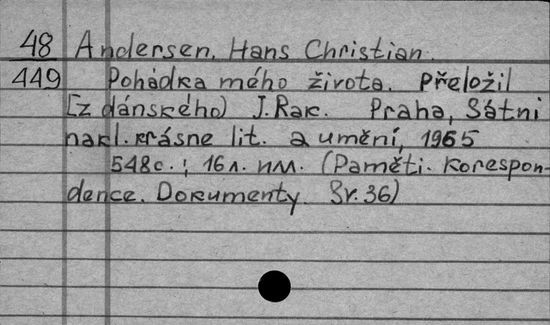 48 Andersen, Hans Christian.
449 Pohádka mého života. Přeložil
[z dánského) J. Rak. Praha, Sátni
nakl. krásne lit. a umění, 1965
548c.; 16л. илл. (Paměti. Korespon-
dence. Dokumenty. Sv. 36)